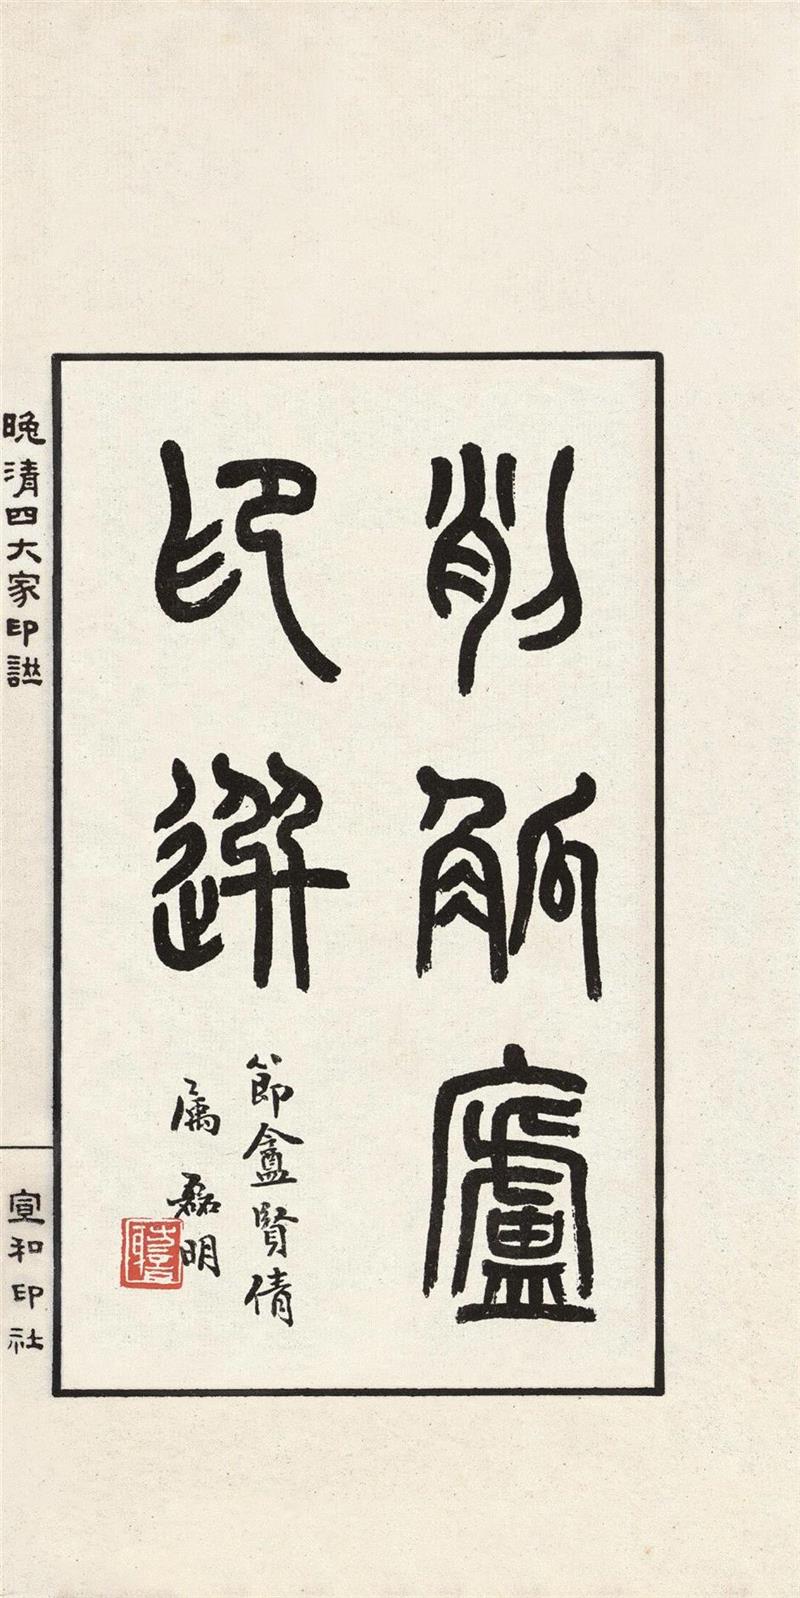 削觚廬
印選
節盦賢倩
属 磊明
晚清四大家印諩
宣和印社